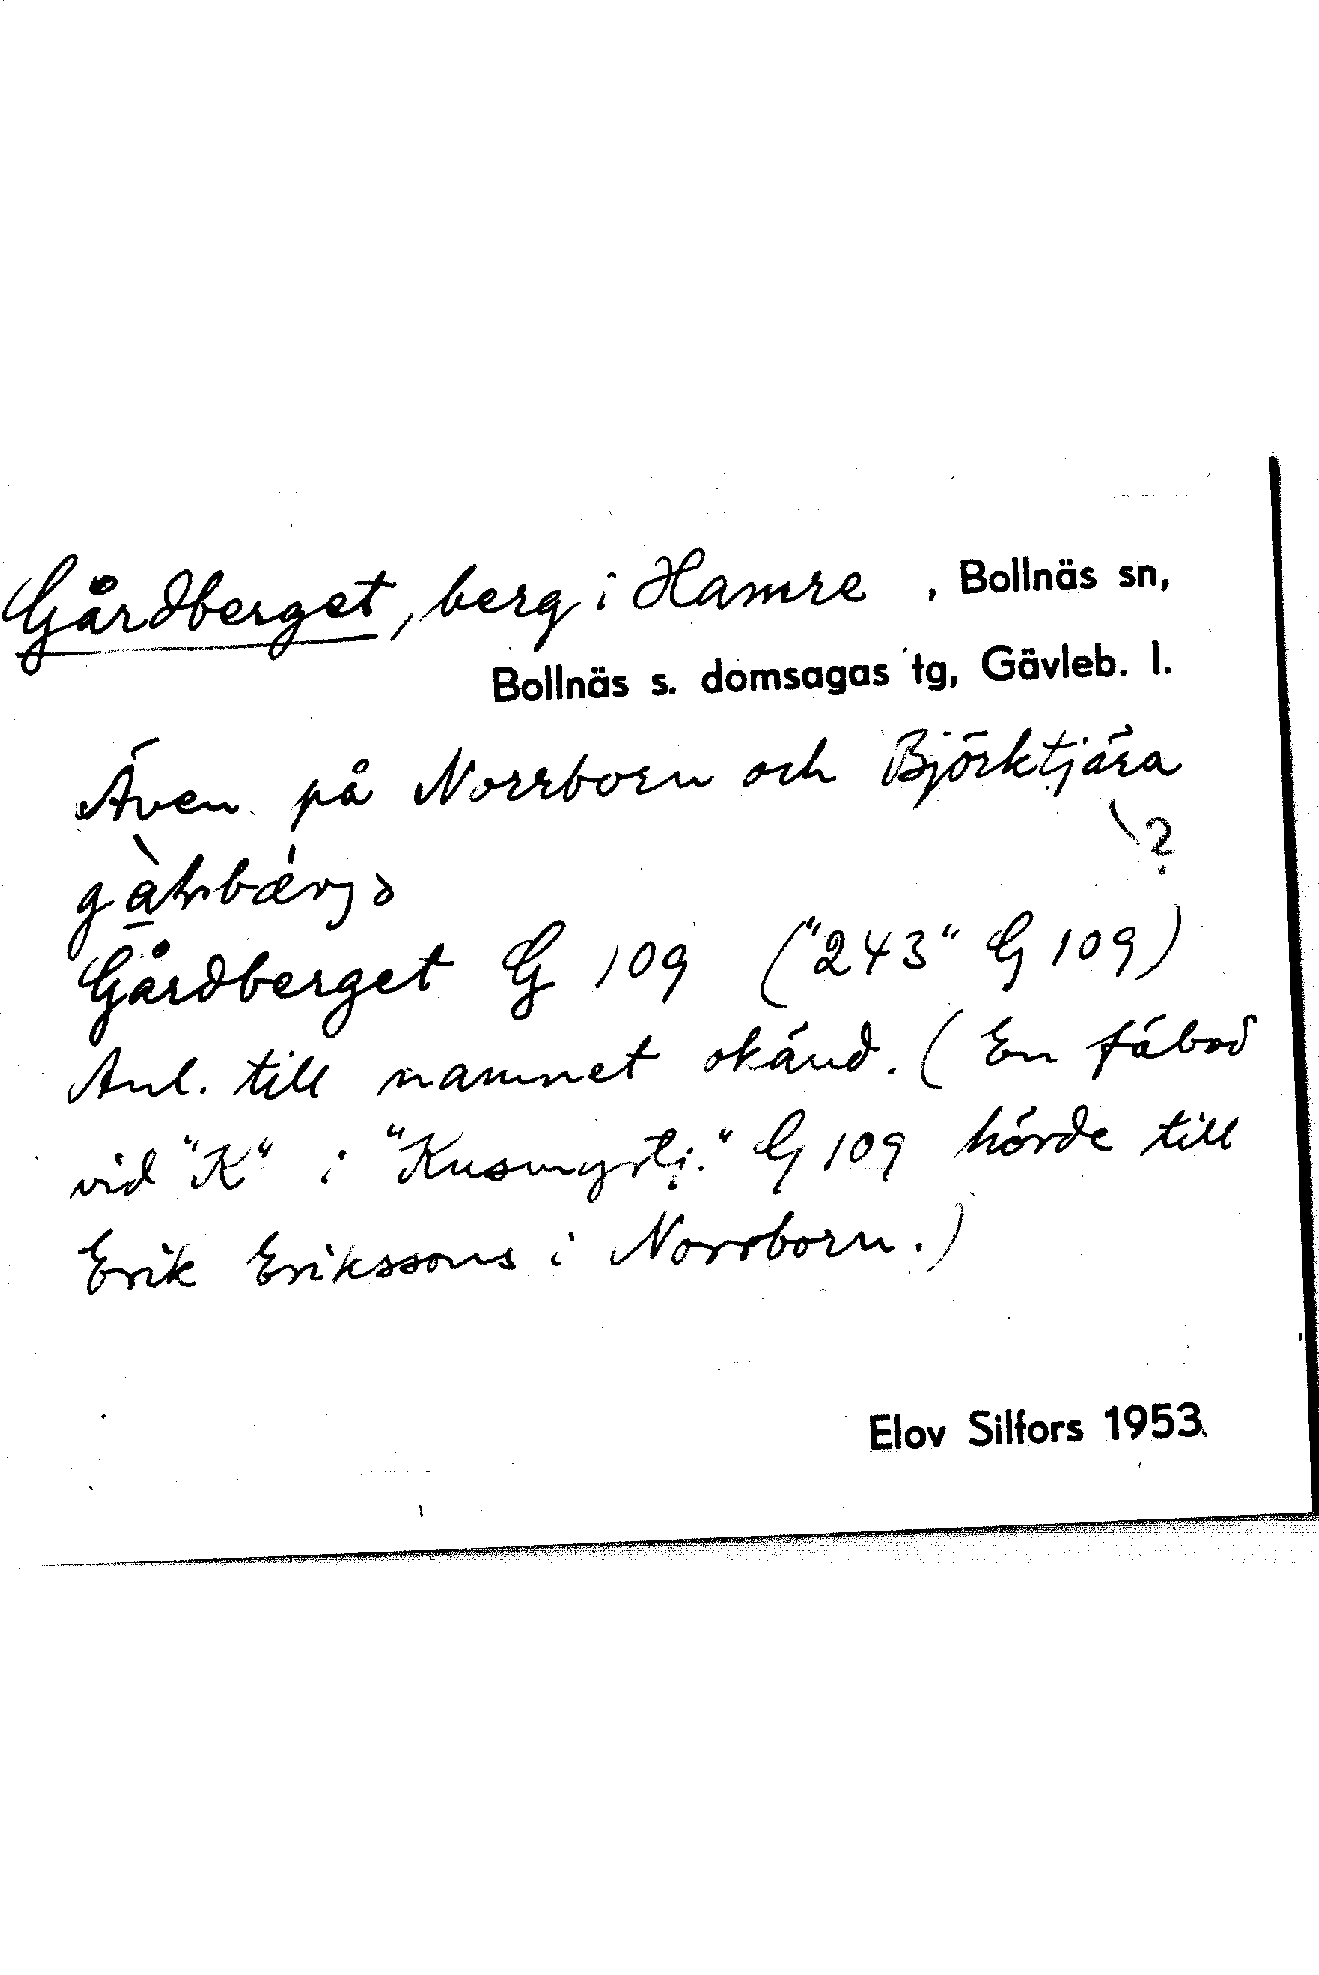 Gårdberget, berg i Hamre , Bollnäs sn,
Bollnäs s. domsagas tg, Gävleb. l.
Även på Norrborn och Björktjära
?
Gårdberget G 109 ("243" G 109)
Anl. till namnet okänd. (En fäbod
vid "K" i "Kusmyrtj." G 109 hörde till
Erik Erikssons i Norrborn.)
Elov Silfors 1953